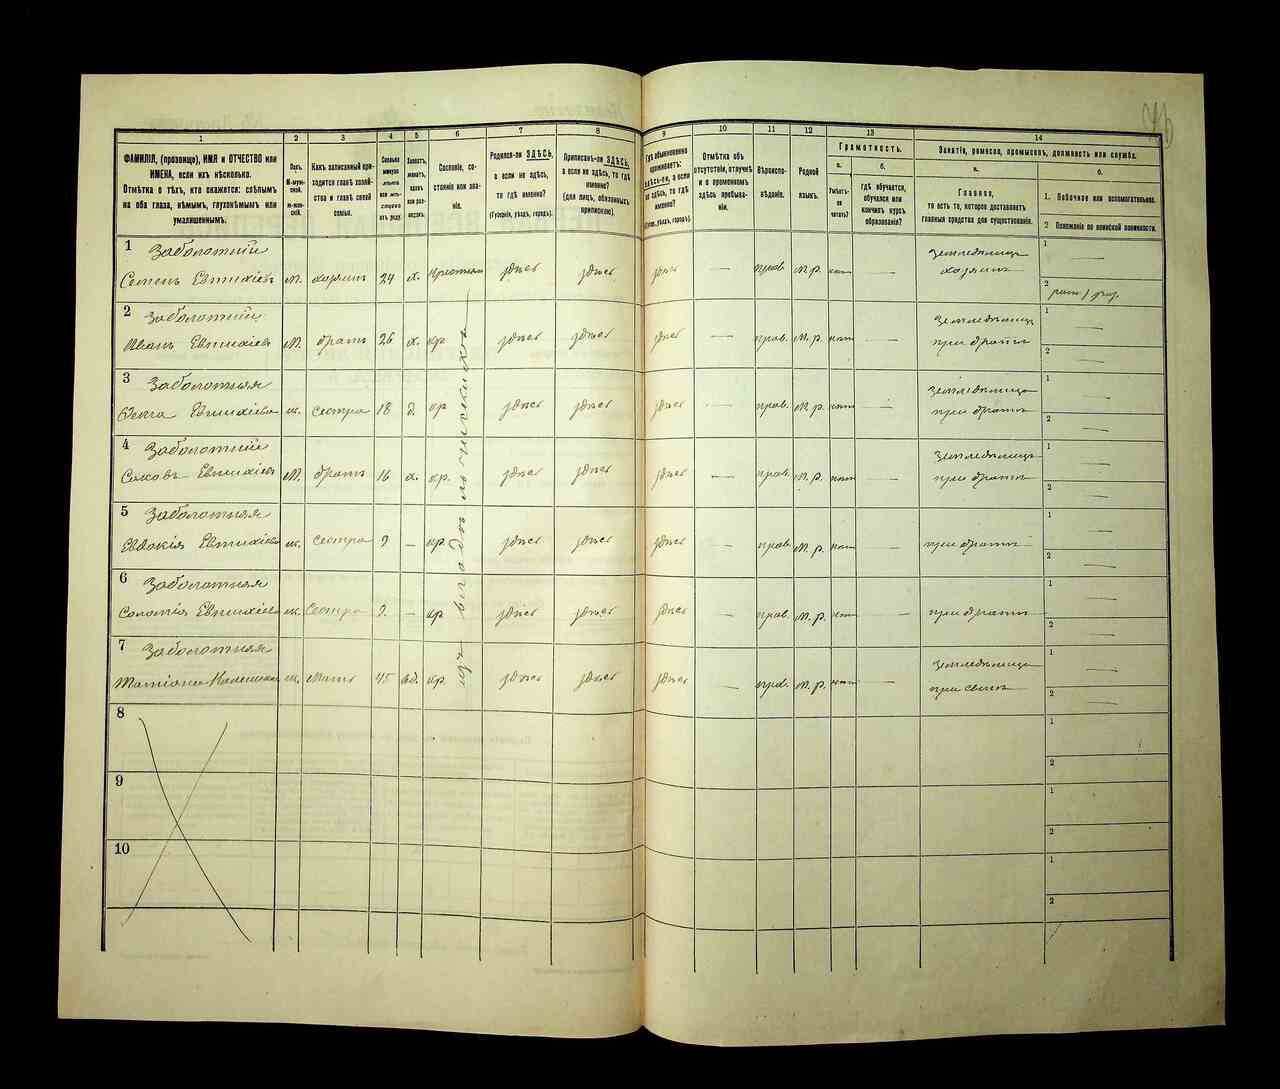 1 2 3 4 5 6 7 8 9 10 11 12 13 14
ФАМИЛІЯ, (прозвище), ИМЯ и ОТЧЕСТВО или
ИМЕНА, если ихъ нѣсколько.
Отмѣтка о тѣхъ, кто окажется: слѣпымъ
на оба глаза, нѣмымъ, глухонѣмымъ или
умалишеннымъ.
Полъ.
М-муж-
ской.
ж-жен-
скій.
Какъ записанный при-
ходится главѣ хозяй-
ства и главѣ своей
семьи.
Сколько
минуло
лѣтъ
или мѣ-
сяцевъ
отъ роду.
Холостъ,
женатъ,
вдовъ
или раз-
веденъ.
Сословіе, со-
стояніе или зва-
ніе.
Родился-ли ЗДѢСЬ,
а если не здѣсь,
то гдѣ именно?
(Губернія, уѣздъ, городъ).
Приписанъ-ли ЗДѢСЬ,
а если не здѣсь, то гдѣ
именно?
(для лицъ, обязанныхъ
припискою).
Гдѣ обыкновенно
проживаетъ:
здѣсь-ли, а если
не здѣсь, то гдѣ
именно?
(Губернія, уѣздъ, городъ).
Отмѣтка объ
отсутствіи, отлучкѣ
и о временномъ
здѣсь пребыва-
ніи.
Вѣроиспо-
вѣданіе.
Родной
языкъ.
Грамотность.
а.
Умѣетъ-
ли
читать?
б.
гдѣ обучается,
обучался или
кончилъ курсъ
образованія?
Занятія, ремесло, промыселъ, должность или служба.
а.
Главное,
то есть то, которое доставляетъ
главныя средства для существованія.
б.
1. Побочное или вспомогательное.
2 Положеніе по воинской повинности.
1 Заболотній 1
Семенъ Евтихіевъ м. хозяинъ 24 х. крестьян здѣсь здѣсь здѣсь — прав. м. р. нѣтъ — земледѣлецъ хозяинъ — 2
2 Заболотній 1
Иванъ Евтихіевъ м. братъ 26 х. кр здѣсь здѣсь здѣсь — прав. м. р. нѣтъ — земледѣлецъ при братѣ — 2 —
3 Заболотняя 1
Ѳекла Евтихіева ж. сестра 18 д. кр здѣсь здѣсь здѣсь — прав. м. р. нѣтъ — земледѣлица при братѣ — 2 —
4 Заболотній 1
Яковъ Евтихіевъ м. братъ 16 х. кр. здѣсь здѣсь здѣсь — прав. м. р. нѣтъ — земледѣлецъ при братѣ — 2 —
5 Заболотняя 1
Евдокія Евтихіева ж. сестра 9 — кр здѣсь здѣсь здѣсь — прав. м. р. нѣтъ — при братѣ — 2 —
6 Заболотняя 1
Соломія Евтихіева ж. сестра — кр здѣсь здѣсь здѣсь — прав. м. р. нѣтъ — при братѣ — 2 —
7 Заболотняя 1
Татіана ж. мать 45 вд. кр. здѣсь здѣсь здѣсь — прав. м. р. нѣтъ — земледѣлица при сынѣ — 2 —
изъ владѣльческихъ
8 1
2
9 1
2
10 1
2